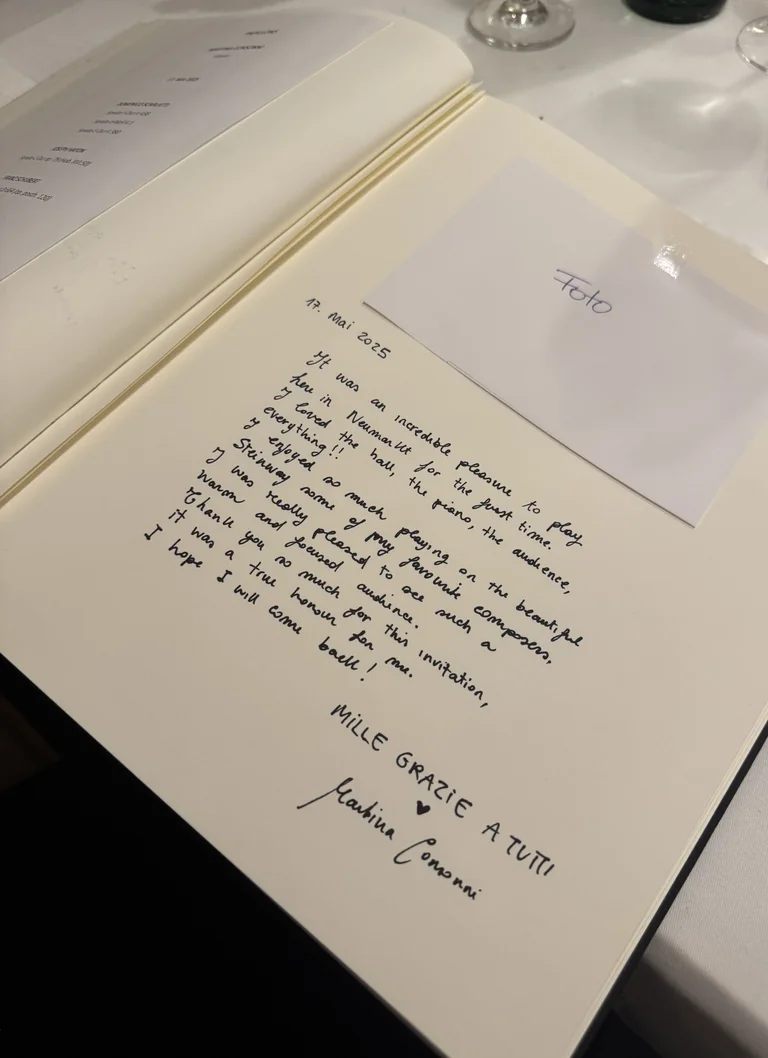 JOSEPH HAYDN
FRANZ SCHUBERT
Foto
17. Mai 2025
It was an incredible pleasure to play
here in Neumarkt for the first time.
I loved the hall, the piano, the audience,
everything!!
I enjoyed so much playing on the beautiful
Steinway some of my favourite composers,
I was really pleased to see such a
warm and focused audience.
Thank you so much for this invitation,
it was a true honour for me.
I hope I will come back!
MILLE GRAZIE A TUTTI
♥
Martina Consonni